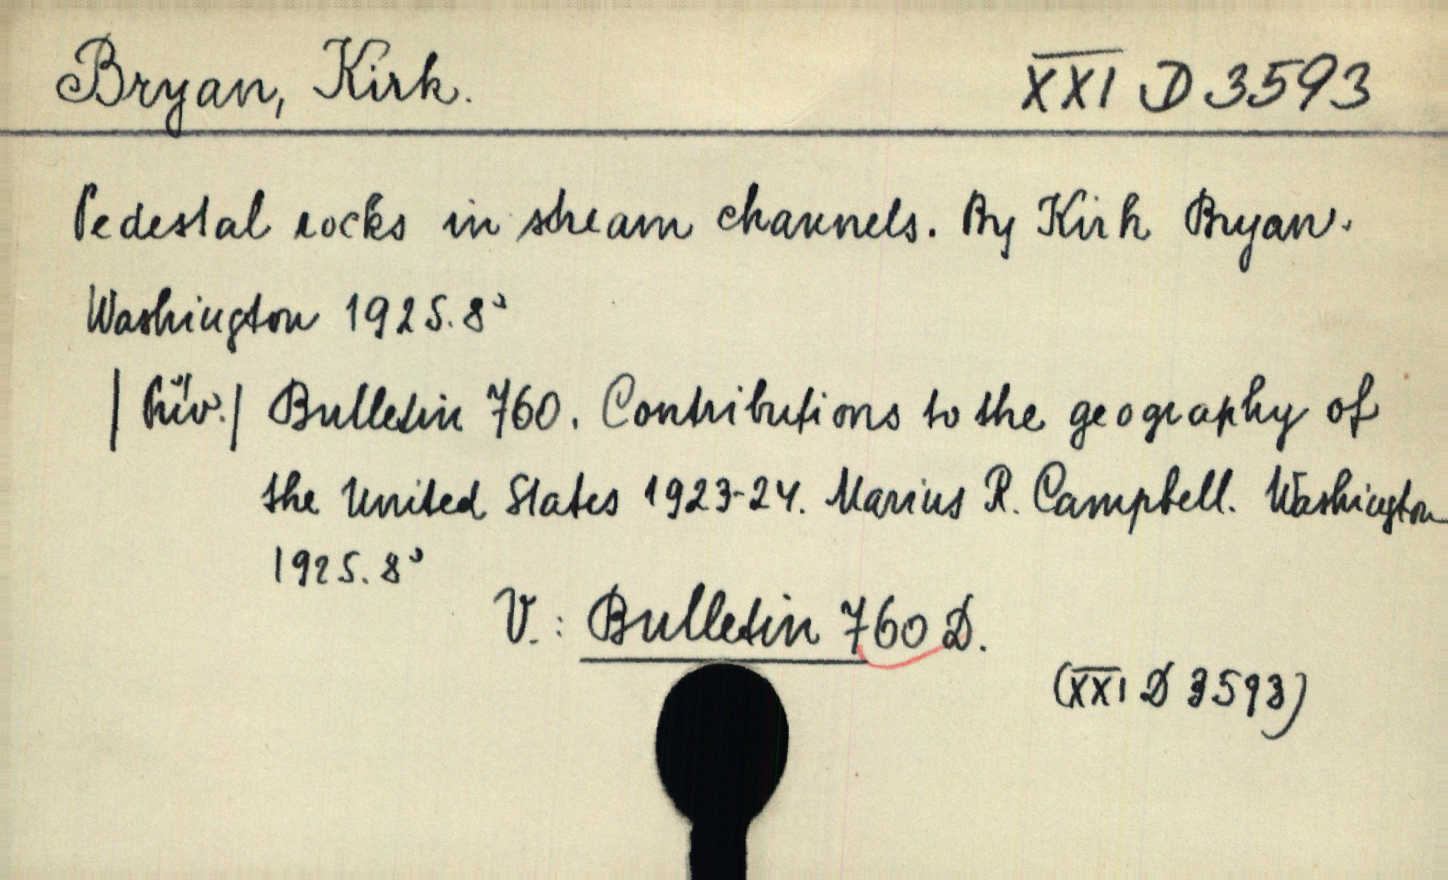 Bryan, Kirk. XXI D 3593
Pedestal rocks in stream channels. By Kirk Bryan.
Washington 1925. 8°
/ Bulletin 760. Contributions to the geography of
the United States 1923-24. Marius R. Campbell. Washington
1925. 8°
V.: Bulletin 760 D.
(XXI D 3593)